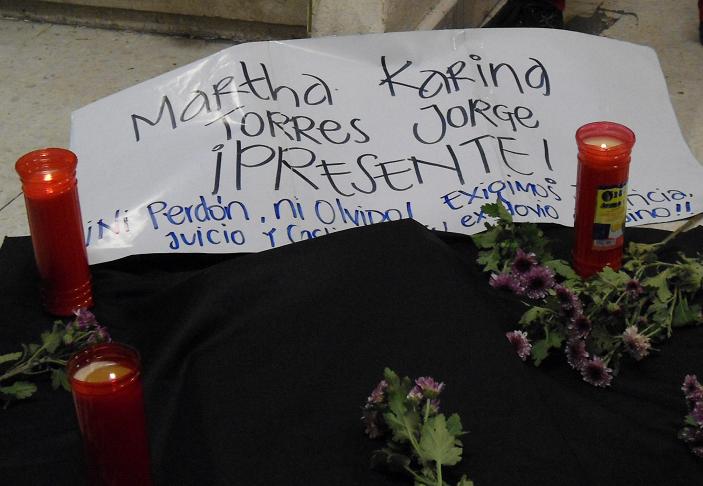 Martha Karina
TORRes JORGE
¡PRESENTE!
¡Ni Perdón, ni Olvido! Exigimos
Juicio y exnovio